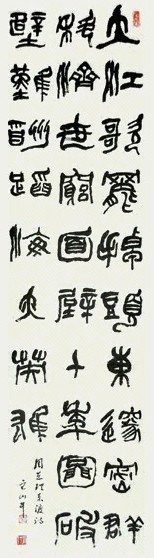 大江歌罷掉頭東邃密群
科濟世窮面壁十年圖破
壁難酬蹈海亦英雄
周恩來東渡詩